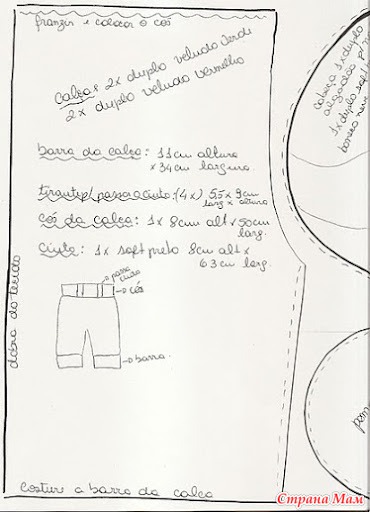 franzir e colocar o cós
calça: 2x duplo veludo verde
2x duplo veludo vermelho
barra da calça: 11cm altura
x 34cm largura
passa cinto: (4x) 5,5 x 9cm
larg x altura
cós da calça: 1x 8cm alt x 50cm
larg.
cinto: 1x soft preto 8cm alt x
63cm larg.
passa
cinto
cós
barra
dobra do tecido
costure a barra da calça
cabeça 1x duplo
algodão p/
1x duplo soft
boneco neve
Страна Мам